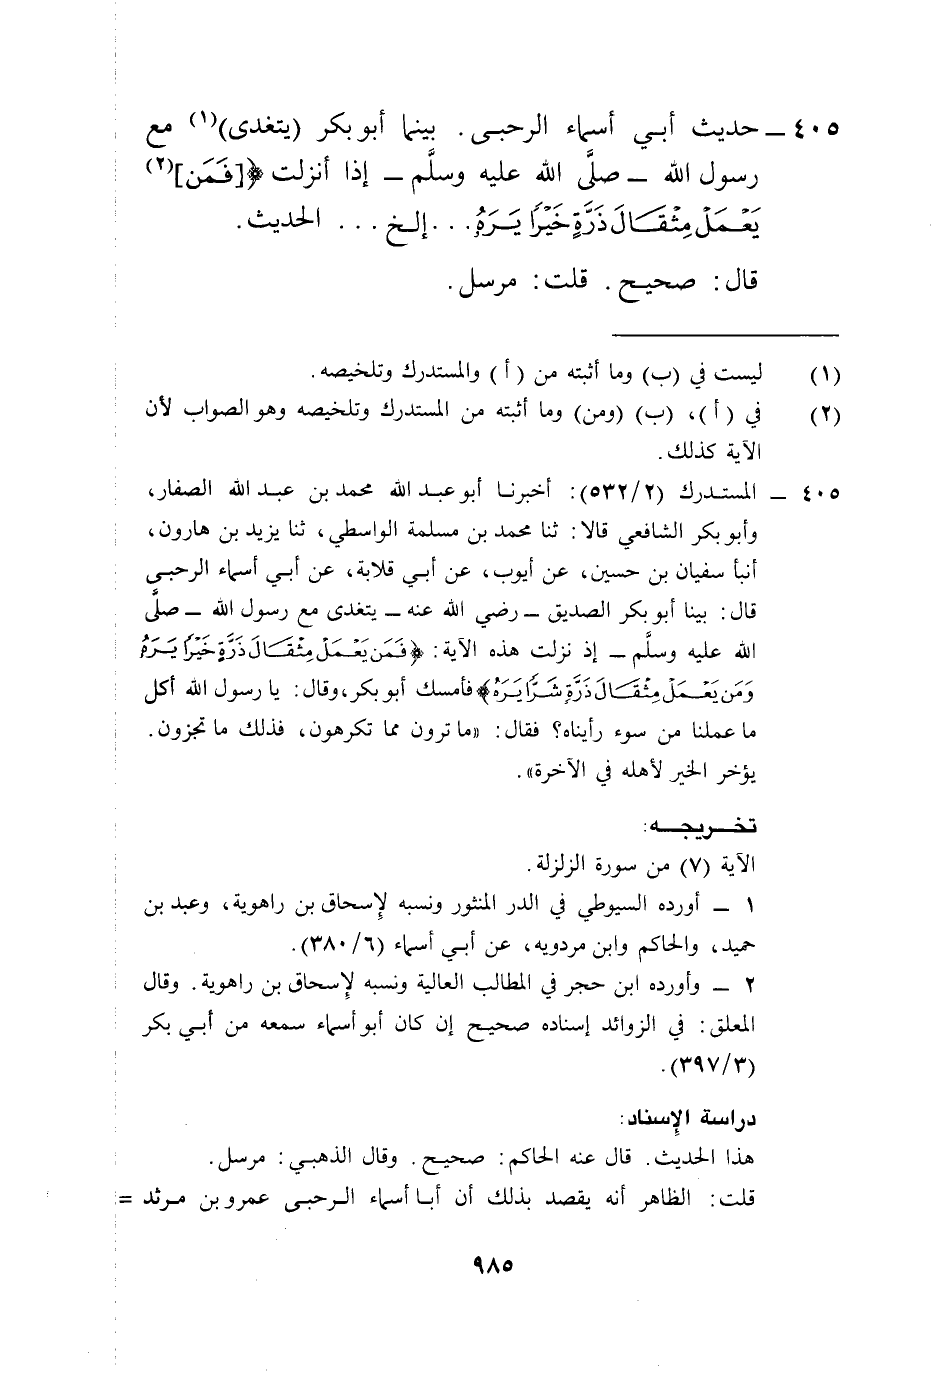 ٤٠٥ ــ حديث أبي أسماء الرحبي. بينما أبو بكر (يتغدى)(١) مع
رسول الله ــ صلَّى الله عليه وسلَّم ــ إذا أنزلت ﴿[فَمَن](٢)
يَعْمَلْ مِثْقَالَ ذَرَّةٍ خَيْرًا يَرَهُ... إلخ... الحديث.
قال: صحيح. قلت: مرسل.
(١) ليست في (ب) وما أثبته من (أ) والمستدرك وتلخيصه.
(٢) في (أ)، (ب) (ومن) وما أثبته من المستدرك وتلخيصه وهو الصواب لأن
الآية كذلك.
٤٠٥ ــ المستدرك (٥٣٢/٢): أخبرنا أبو عبد الله محمد بن عبد الله الصفار،
وأبو بكر الشافعي قالا: ثنا محمد بن مسلمة الواسطي، ثنا يزيد بن هارون،
أنبأ سفيان بن حسين، عن أيوب، عن أبي قلابة، عن أبي أسماء الرحبي
قال: بينا أبو بكر الصديق ــ رضي الله عنه ــ يتغدى مع رسول الله ــ صلَّى
الله عليه وسلَّم ــ إذ نزلت هذه الآية: ﴿فَمَن يَعْمَلْ مِثْقَالَ ذَرَّةٍ خَيْرًا يَرَهُ
وَمَن يَعْمَلْ مِثْقَالَ ذَرَّةٍ شَرًّا يَرَهُ﴾ فأمسك أبو بكر، وقال: يا رسول الله أكل
ما عملنا من سوء رأيناه؟ فقال: «ما ترون مما تكرهون، فذلك ما تجزون.
يؤخر الخير لأهله في الآخرة».
تخريجه:
الآية (٧) من سورة الزلزلة.
١ ــ أورده السيوطي في الدر المنثور ونسبه لإسحاق بن راهوية، وعبد بن
حميد، والحاكم وابن مردويه، عن أبي أسماء (٣٨٠/٦).
٢ ــ وأورده ابن حجر في المطالب العالية ونسبه لإسحاق بن راهوية. وقال
المعلق: في الزوائد إسناده صحيح إن كان أبو أسماء سمعه من أبي بكر
(٣٩٧/٣).
دراسة الإسناد:
هذا الحديث. قال عنه الحاكم: صحيح. وقال الذهبي: مرسل.
قلت: الظاهر أنه يقصد بذلك أن أبا أسماء الرحبي عمرو بن مرثد =
٩٨٥